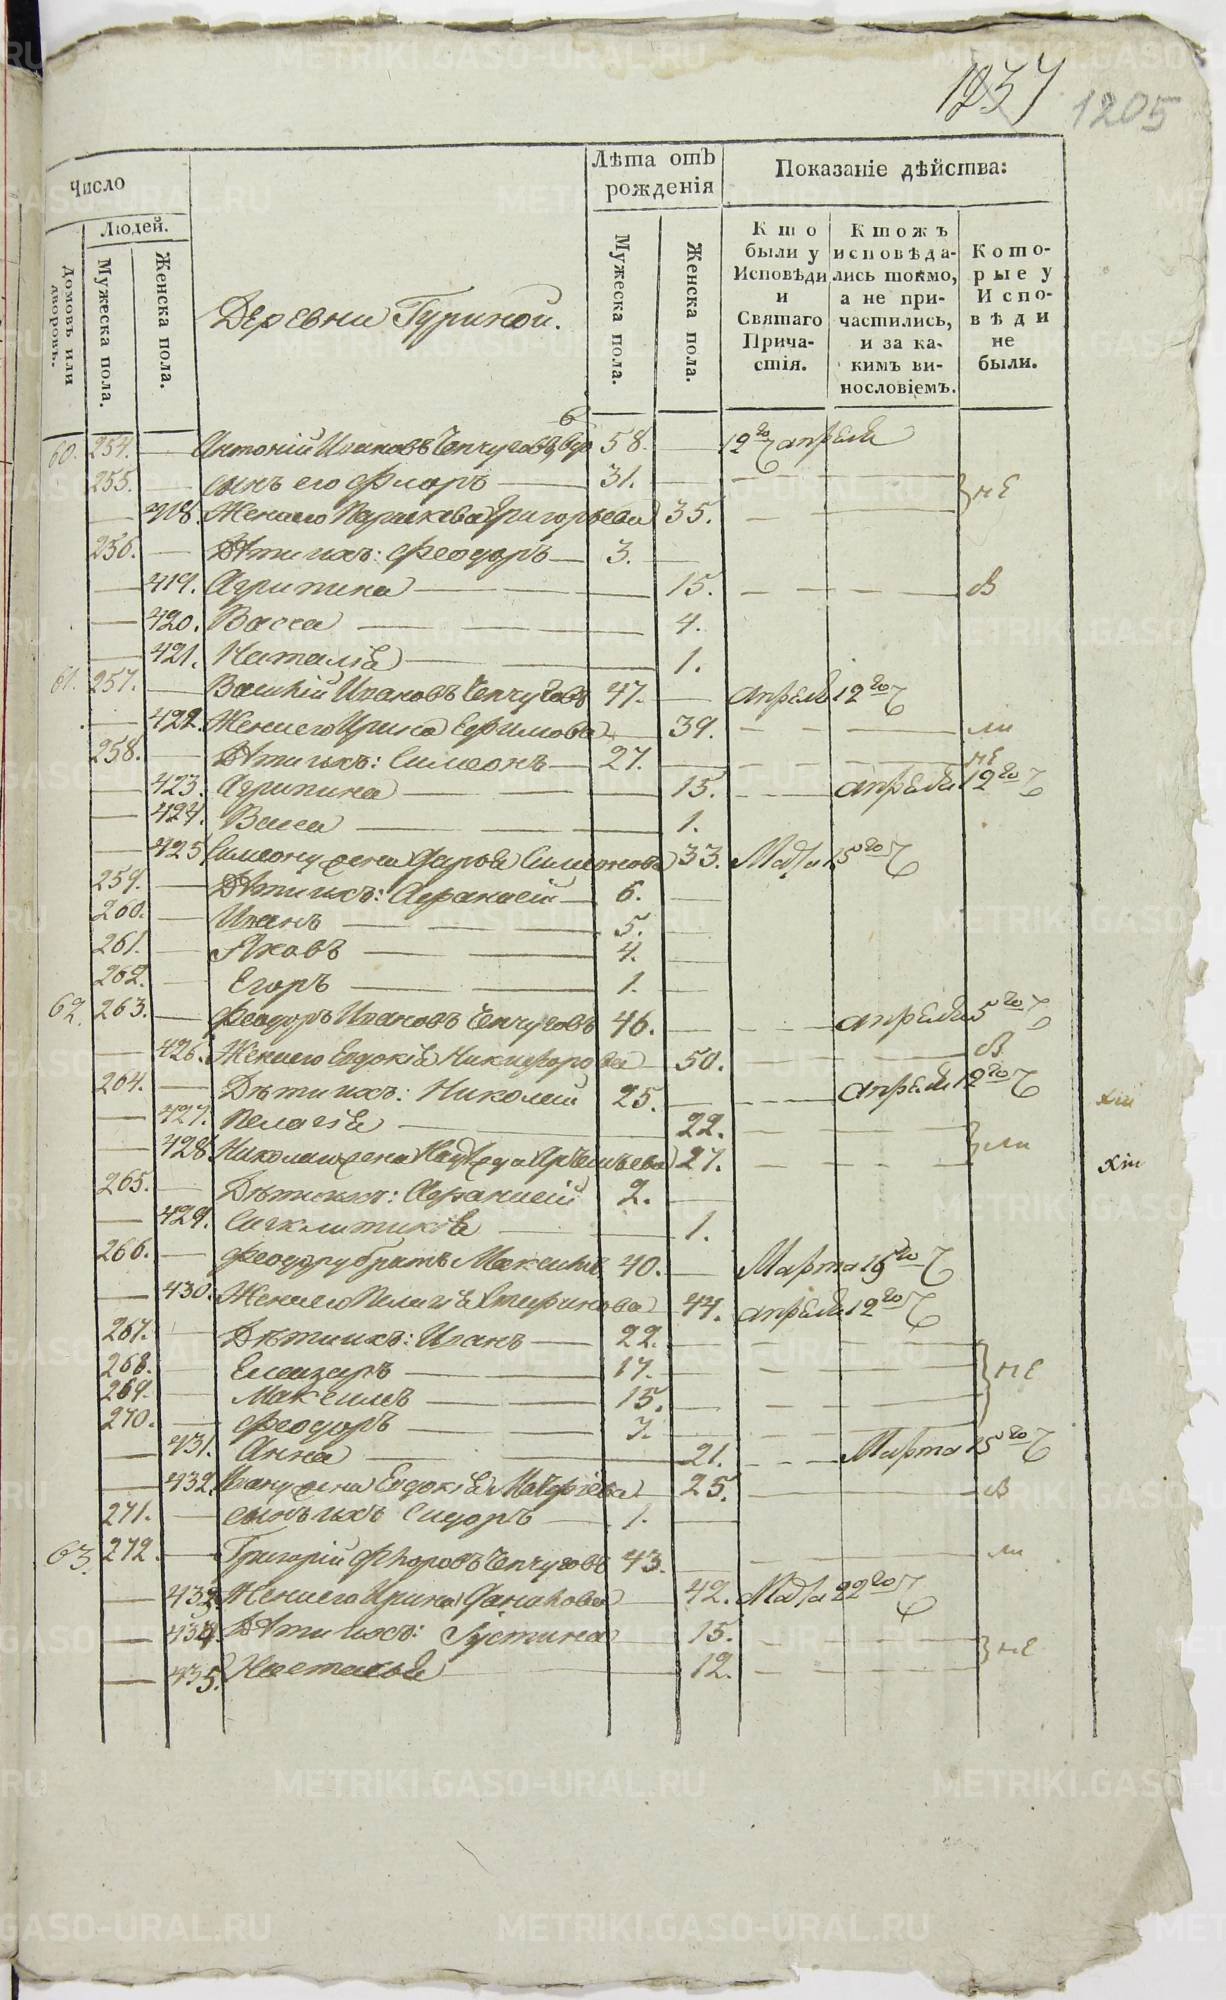 1237 1205
Число
Людей.
Домовъ или дворовъ.
Мужеска пола.
Женска пола.
Деревни Гуриной.
Лѣта отъ рожденія
Мужеска пола.
Женска пола.
Показаніе дѣйства:
Кто были у Исповѣди и Святаго Причастія.
Ктожъ исповѣдались токмо, а не причастились, и за какимъ винословіемъ.
Которые у Исповѣди не были.
60. 254. — Антоній Ивановъ Чепчуговъ, вдо 58. — 12го апреля
255. — сынъ его Флоръ — 31. — не
— 418. Жена его Параскева Григорьева 35.
256. — Дѣти ихъ: Феодоръ — 3. —
— 419. Агрипина — 15.
— 420. Васса — 4.
— 421. Наталія — 1.
61. 257. — Василій Ивановъ Чепчуговъ 47. — апреля 12го
— 422. Жена его Ирина Ефимова 39. — ли
258. — Дѣти ихъ: Симеонъ — 27. — не
— 423. Агрипина — 15. — апреля 12го
— 424. Васса — 1.
— 425 Симеону жена Дарья 33. 15го
259. — Дѣти ихъ: Афанасій — 6. —
260. — Иванъ — 5. —
261. — Яковъ — 4. —
262. — Егоръ — 1. —
62. 263. — Феодоръ Ивановъ Чепчуговъ 46. — апреля 5го
— 426. Жена его Евдокія Никифорова 50.
264. — Дѣти ихъ: Николай 25. — апреля 12го
— 427. Пелагія — 22.
— 428. Николаю жена 27. — ли
265. — Дѣти ихъ: Афанасій 2. —
— 429. Сигклитикія — 1.
266. — Феодору братъ Максимъ 40. — Марта 15го
— 430. Жена его Пелагія 44. апреля 12го
267. — Дѣти ихъ: Иванъ — 22. —
268. — Елеазаръ — 17. — не
269. — Максимъ — 15. —
270. — Феодоръ — 7. —
— 431. Анна — 21. — Марта 15го
— 432. Ивану жена Евдокія 25.
271. — сынъ ихъ Сидоръ — 1. —
63. 272. — Григорій Чепчуговъ 43. — ли
— 433. Жена его Ирина 42. 22го
— 434 Дѣти ихъ: Іустина — 15. — не
— 435. Настасья — 12.
METRIKI.GASO-URAL.RU